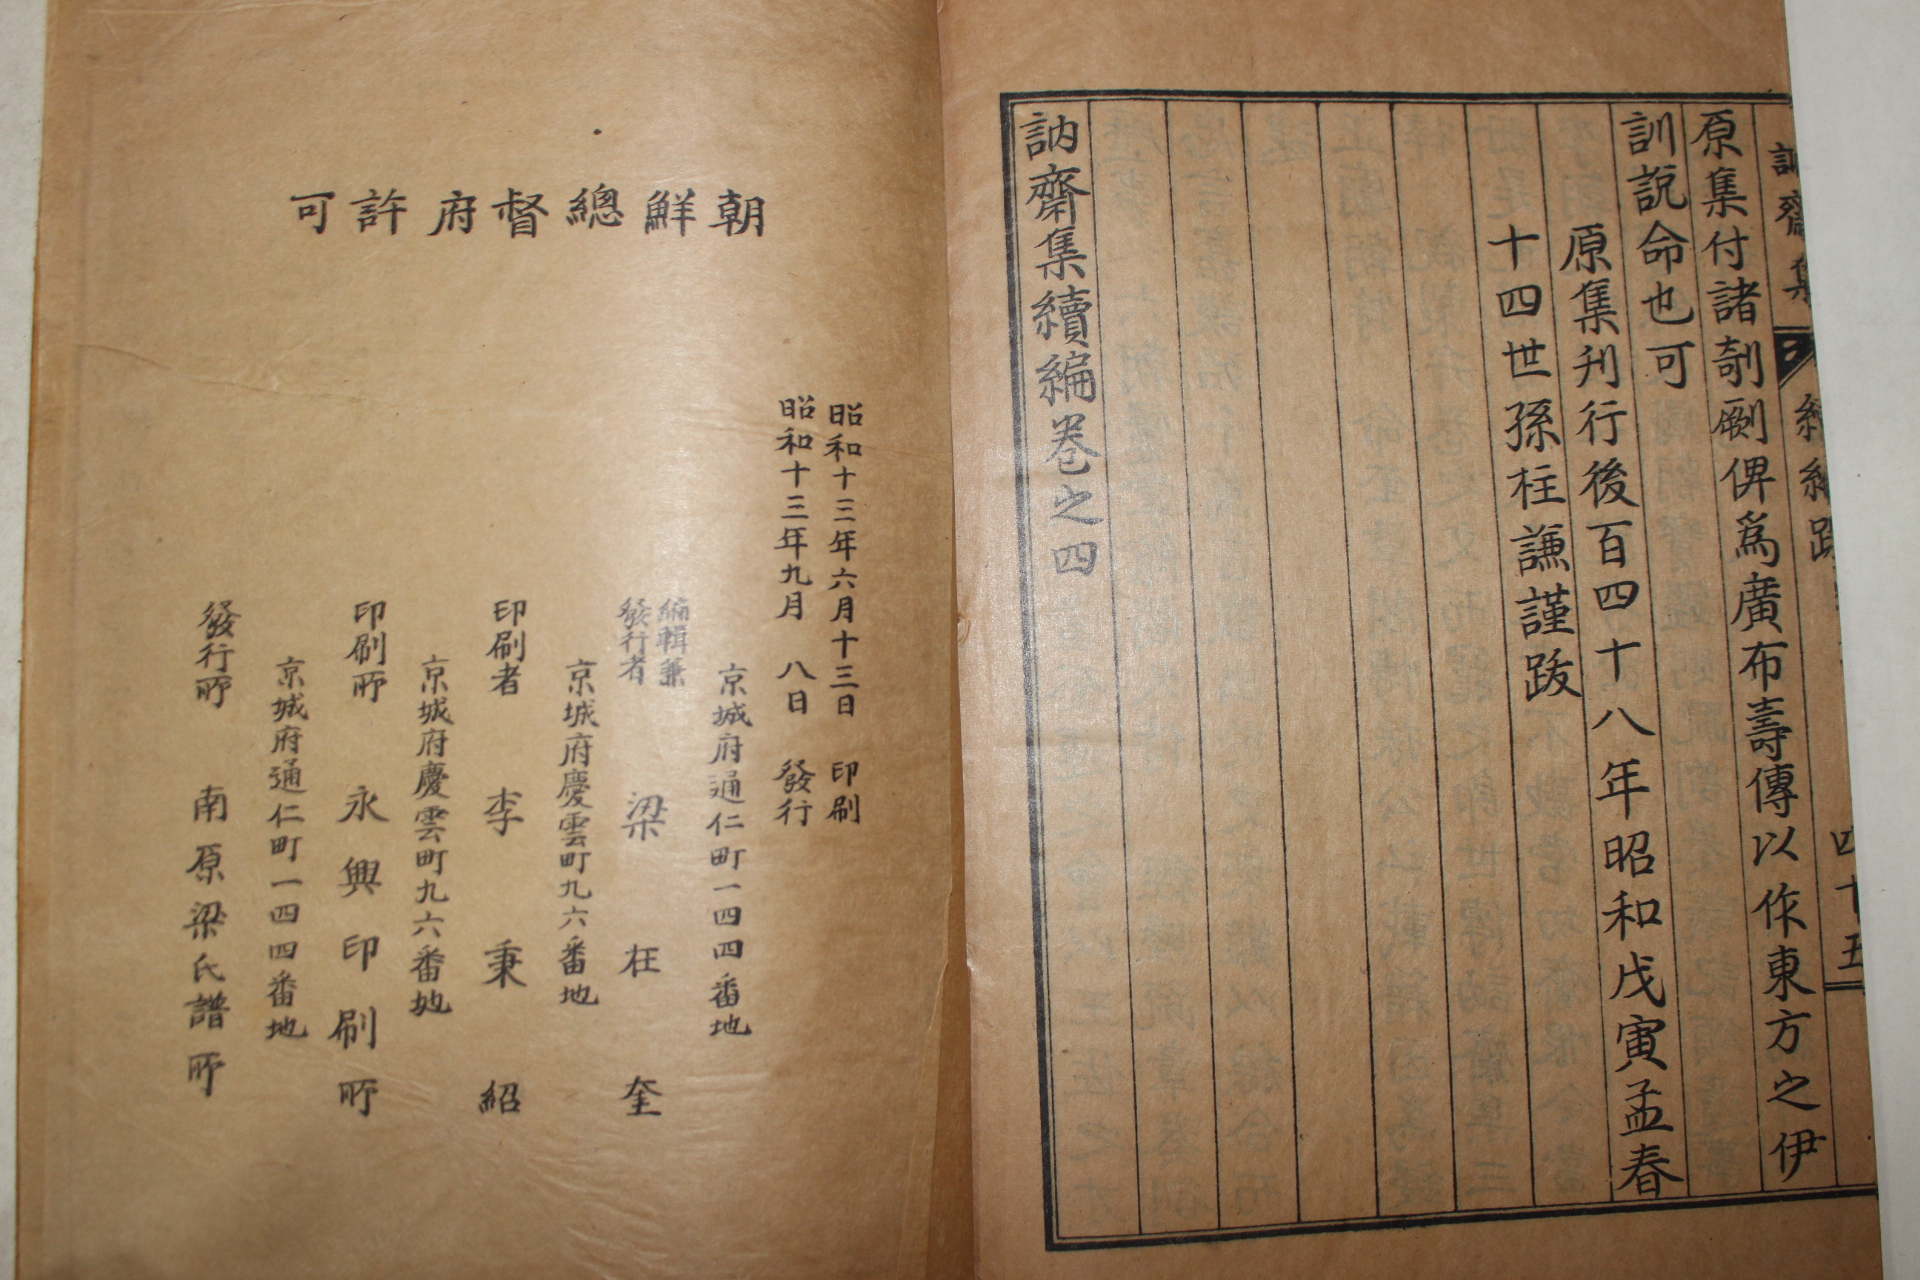 訥齋集
續編跋
四十五
原集付諸剞劂俾爲廣布壽傳以作東方之伊
訓說命也可
原集刋行後百四十八年昭和戊寅孟春
十四世孫柱謙謹跋
訥齋集續編卷之四
朝鮮總督府許可
昭和十三年六月十三日 印刷
昭和十三年九月 八日 發行
京城府通仁町一四四番地
編輯兼
發行者 梁 在 奎
京城府慶雲町九六番地
印刷者 李 秉 紹
京城府慶雲町九六番地
印刷所 永興印刷所
京城府通仁町一四四番地
發行所 南原梁氏譜所